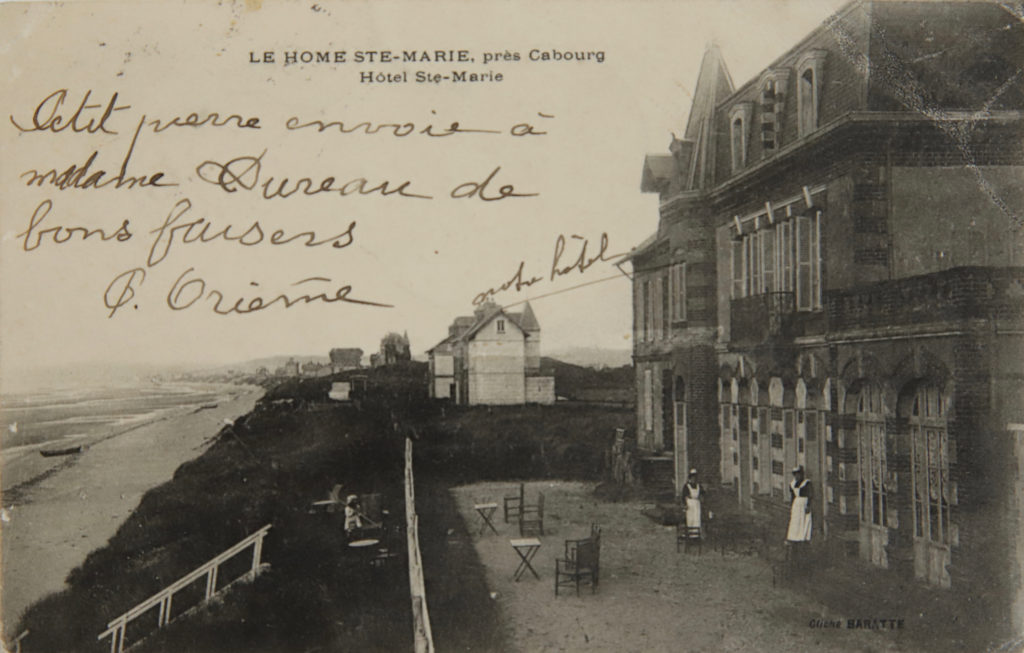 LE HOME STE-MARIE, près Cabourg
Hôtel Ste-Marie
Petit pierre envoie à
madame Dureau de
bons baisers
P. Orieme
notre hôtel
Cliché BARATTE